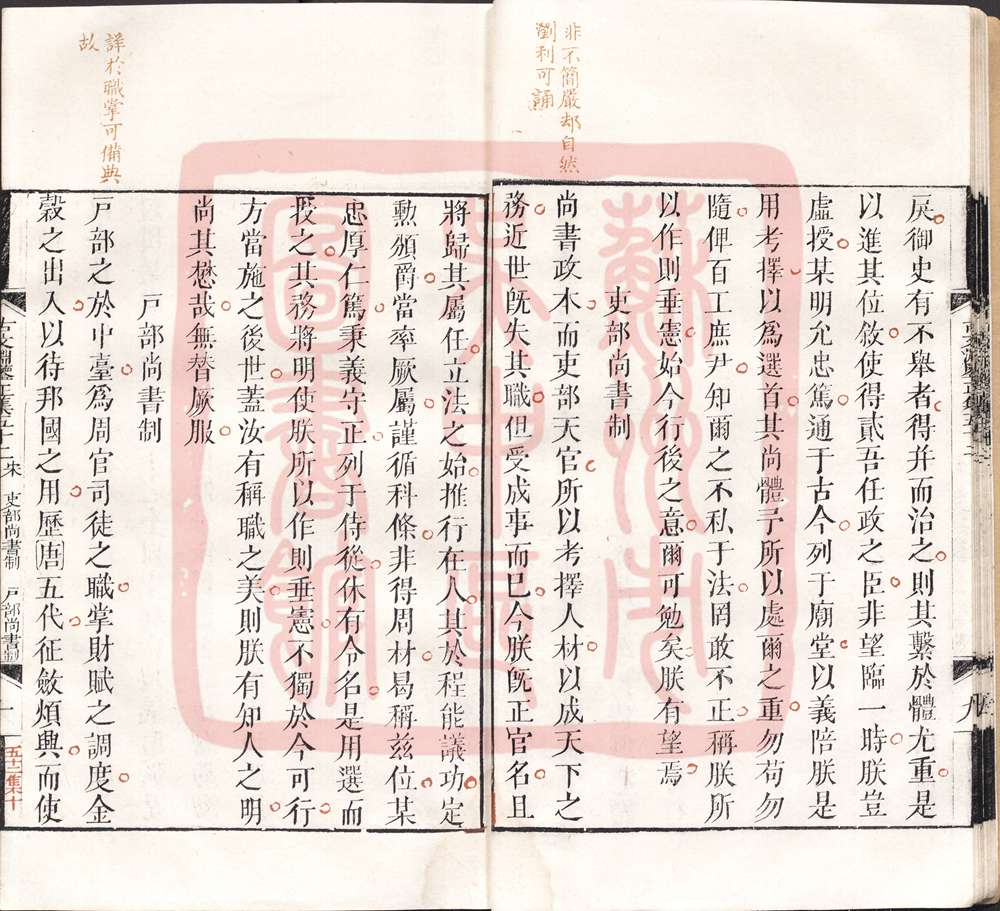 非不簡嚴却自然
瀏利可誦
戾御史有不舉者得并而治之則其繫於體尤重是
以進其位敘使得貳吾任政之臣非望臨一時朕豈
虛授某明允忠篤通于古今列于廟堂以義陪朕是
用考擇以爲選首其尚體予所以處爾之重勿苟勿
隨俾百工庶尹知爾之不私于法罔敢不正稱朕所
以作則垂憲始今行後之意爾可勉矣朕有望焉
吏部尚書制
尚書政本而吏部天官所以考擇人材以成天下之
務近世旣失其職但受成事而已今朕旣正官名且
詳於職掌可備典
故
將歸其屬任立法之始推行在人其於程能議功定
勳頒爵當率厥屬謹循科條非得周材曷稱兹位某
忠厚仁篤秉義守正列于侍從休有令名是用選而
授之其務將明使朕所以作則垂憲不獨於今可行
方當施之後世蓋汝有稱職之美則朕有知人之明
尚其懋哉無替厥服
戸部尚書制
戸部之於中臺爲周官司徒之職掌財賦之調度金
穀之出入以待邦國之用歷唐五代征斂煩興而使
古文淵鑒正集五十二 宋 吏部尚書制 戸部尚書制
五十二集十
蘇州市
朱中國
圖書館